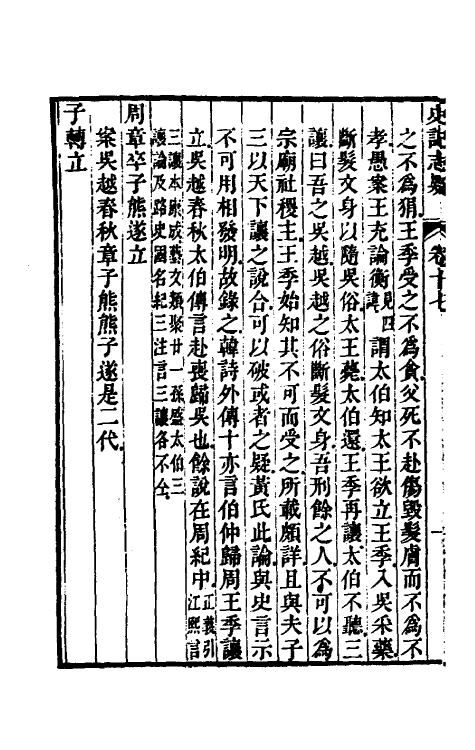 史記志疑 卷十七
之不為狷王季受之不為貪父死不赴傷毀髮膚而不為不
孝愚案王充論衡四諱見謂太伯知太王欲立王季入吳采藥
斷髮文身以隨吳俗太王薨太伯還王季再讓太伯不聽三
讓曰吾之吳越吳越之俗斷髮文身吾刑餘之人不可以為
宗廟社稷主王季始知其不可而受之所載頗詳且與夫子
三以天下讓之說合可以破或者之疑黃氏此論與史言示
不可用相發明故錄之韓詩外傳十亦言伯仲歸周王季讓
立吳越春秋太伯傳言赴喪歸吳也餘說在周紀中正義引江熙言
三讓本於成藝文類聚廿一孫盛太伯三
讓論及路史國名紀三注言三讓各不仝
周章卒子熊遂立
案吳越春秋章子熊熊子遂是二代
子轉立